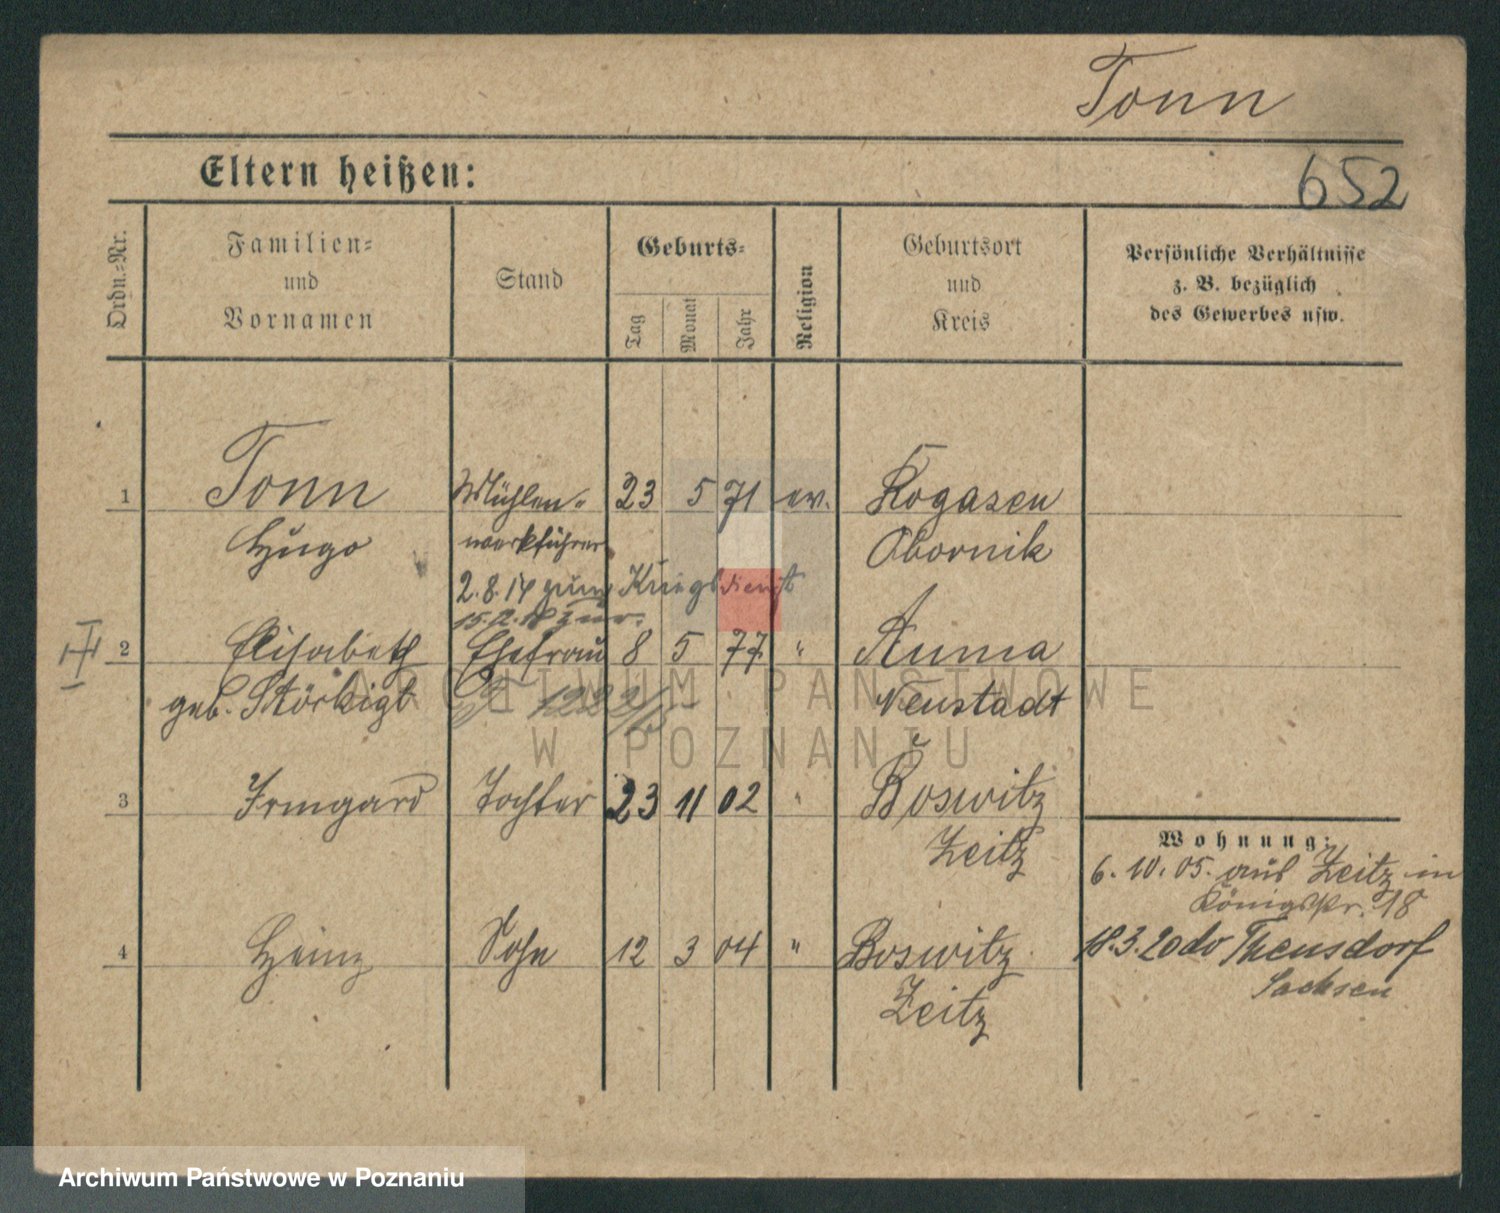 Tonn
Eltern heißen:
652
Ordn.-Nr.
Familien-
und
Vornamen
Stand
Geburts-
Tag
Monat
Jahr
Religion
Geburtsort
und
Kreis
Persönliche Verhältnisse
z. B. bezüglich
des Gewerbes usw.
1 Tonn Mühlen- 23 5 71 ev. Rogasen
Hugo werkführer Obornik
2.8.14 zum Kriegsdienst
15.12.18 zur.
2 Elisabeth Ehefrau 8 5 77 " Auma
geb. Störkigt Neustadt
ARCHIWUM PAŃSTWOWE
W POZNANIU
3 Irmgard Tochter 23 11 02 " Boswitz
Zeitz
Wohnung:
6.10.05. aus Zeitz in
Königstr. 18
4 Heinz Sohn 12 3 04 " Boswitz
Zeitz
18.3.20 do Thensdorf
Sachsen
Archiwum Państwowe w Poznaniu